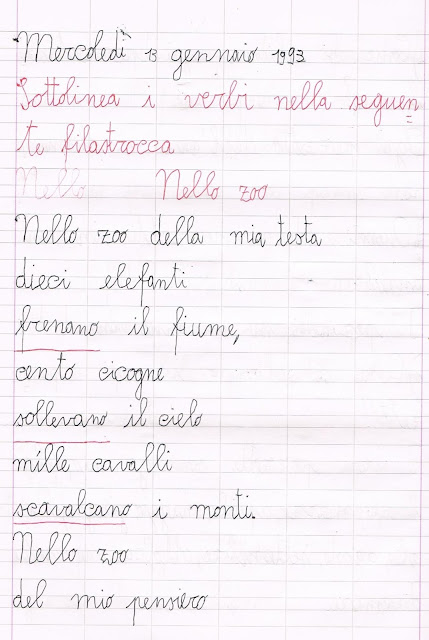 Mercoledì 13 gennaio 1993
Sottolinea i verbi nella seguen=
te filastrocca
Nello Nello zoo
Nello zoo della mia testa
dieci elefanti
frenano il fiume,
cento cicogne
sollevano il cielo
mille cavalli
scavalcano i monti.
Nello zoo
del mio pensiero